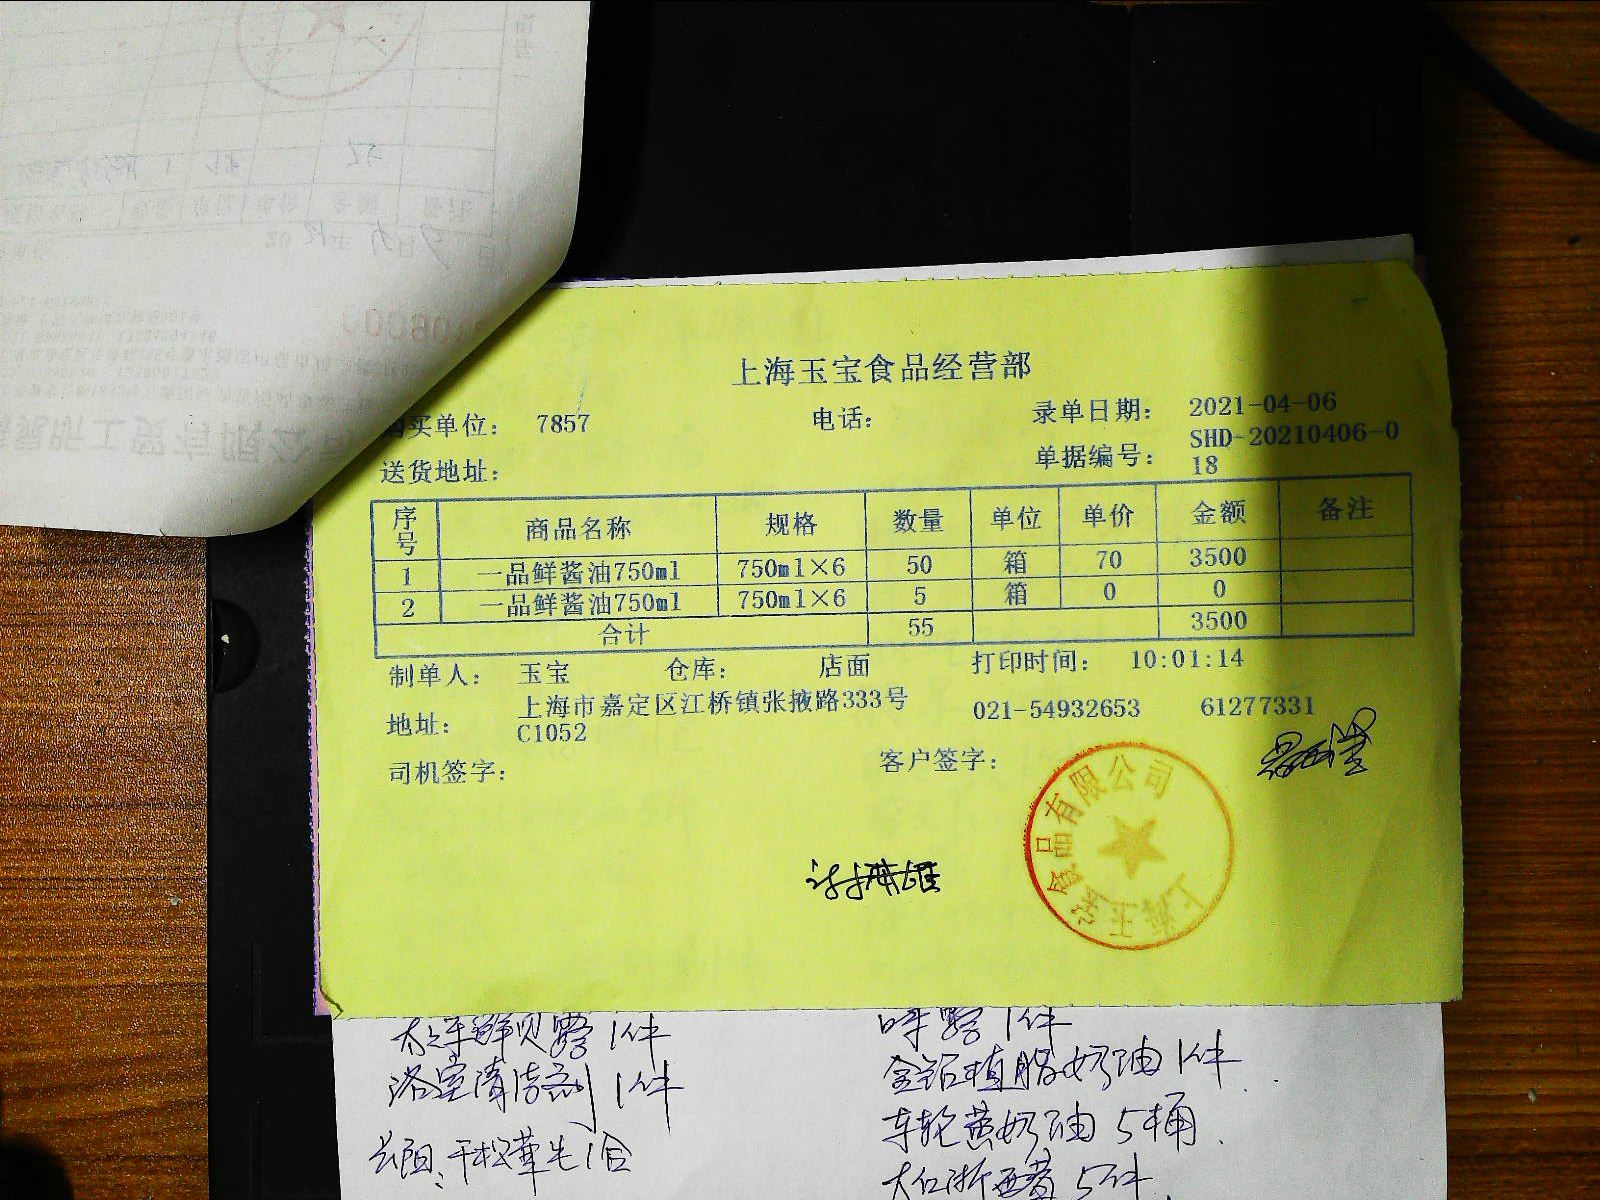 上海玉宝食品经营部
买单位： 7857 电话： 录单日期： 2021-04-06
送货地址： 单据编号： SHD-20210406-0
18
序号 商品名称 规格 数量 单位 单价 金额 备注
1 一品鲜酱油750ml 750ml×6 50 箱 70 3500
2 一品鲜酱油750ml 750ml×6 5 箱 0 0
合计 55 3500
制单人： 玉宝 仓库： 店面 打印时间： 10:01:14
地址： 上海市嘉定区江桥镇张掖路333号 021-54932653 61277331
C1052
司机签字： 客户签字：
食品有限公司
上海
鲜贝露 1件
浴室清洁剂 1件
干松茸 1
味露 1件
金钻植脂奶油 1件
车轮黄奶油 5桶
大红浙醋 5件